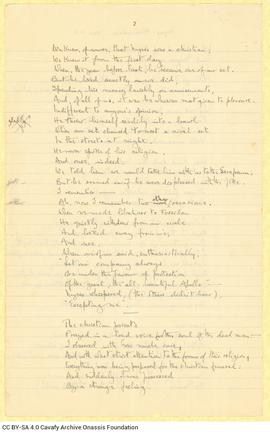 2
We knew, of course, that Myres was a Christian;
We knew it from the first day,
When, the year before last, he became one of our set.
But he lived exactly as we did,
Spending his money lavishly on amusements,
And, of all of us, it was he who was most given to pleasure.
Indifferent to anyone's opinion,
He threw himself readily into a brawl
When our set chanced to meet a rival set
In the streets at night.
He never spoke of his religion.
And once, indeed,
We told him we would take him with us to the Serapeum;
But he seemed as if he were displeased with this joke
I remember —
Ah, now I remember two other occasions.
When we made libations to Poseidon
He quietly withdrew from our circle
And looked away from us;
And once
When one of us said, enthusiastically,
"Let our company always
Be under the favour & protection
Of the great, the all-beautiful Apollo" —
Myres whispered, (the others didn't hear),
"Excepting me" —
The Christian priests
Prayed in a loud voice for the soul of the dead man —
I observed with how much care,
And with what strict attention to the forms of their religion,
Everything was being prepared for the Christian funeral:
And suddenly I was possessed
By a strange feeling
CC BY-SA 4.0 Cavafy Archive Onassis Foundation